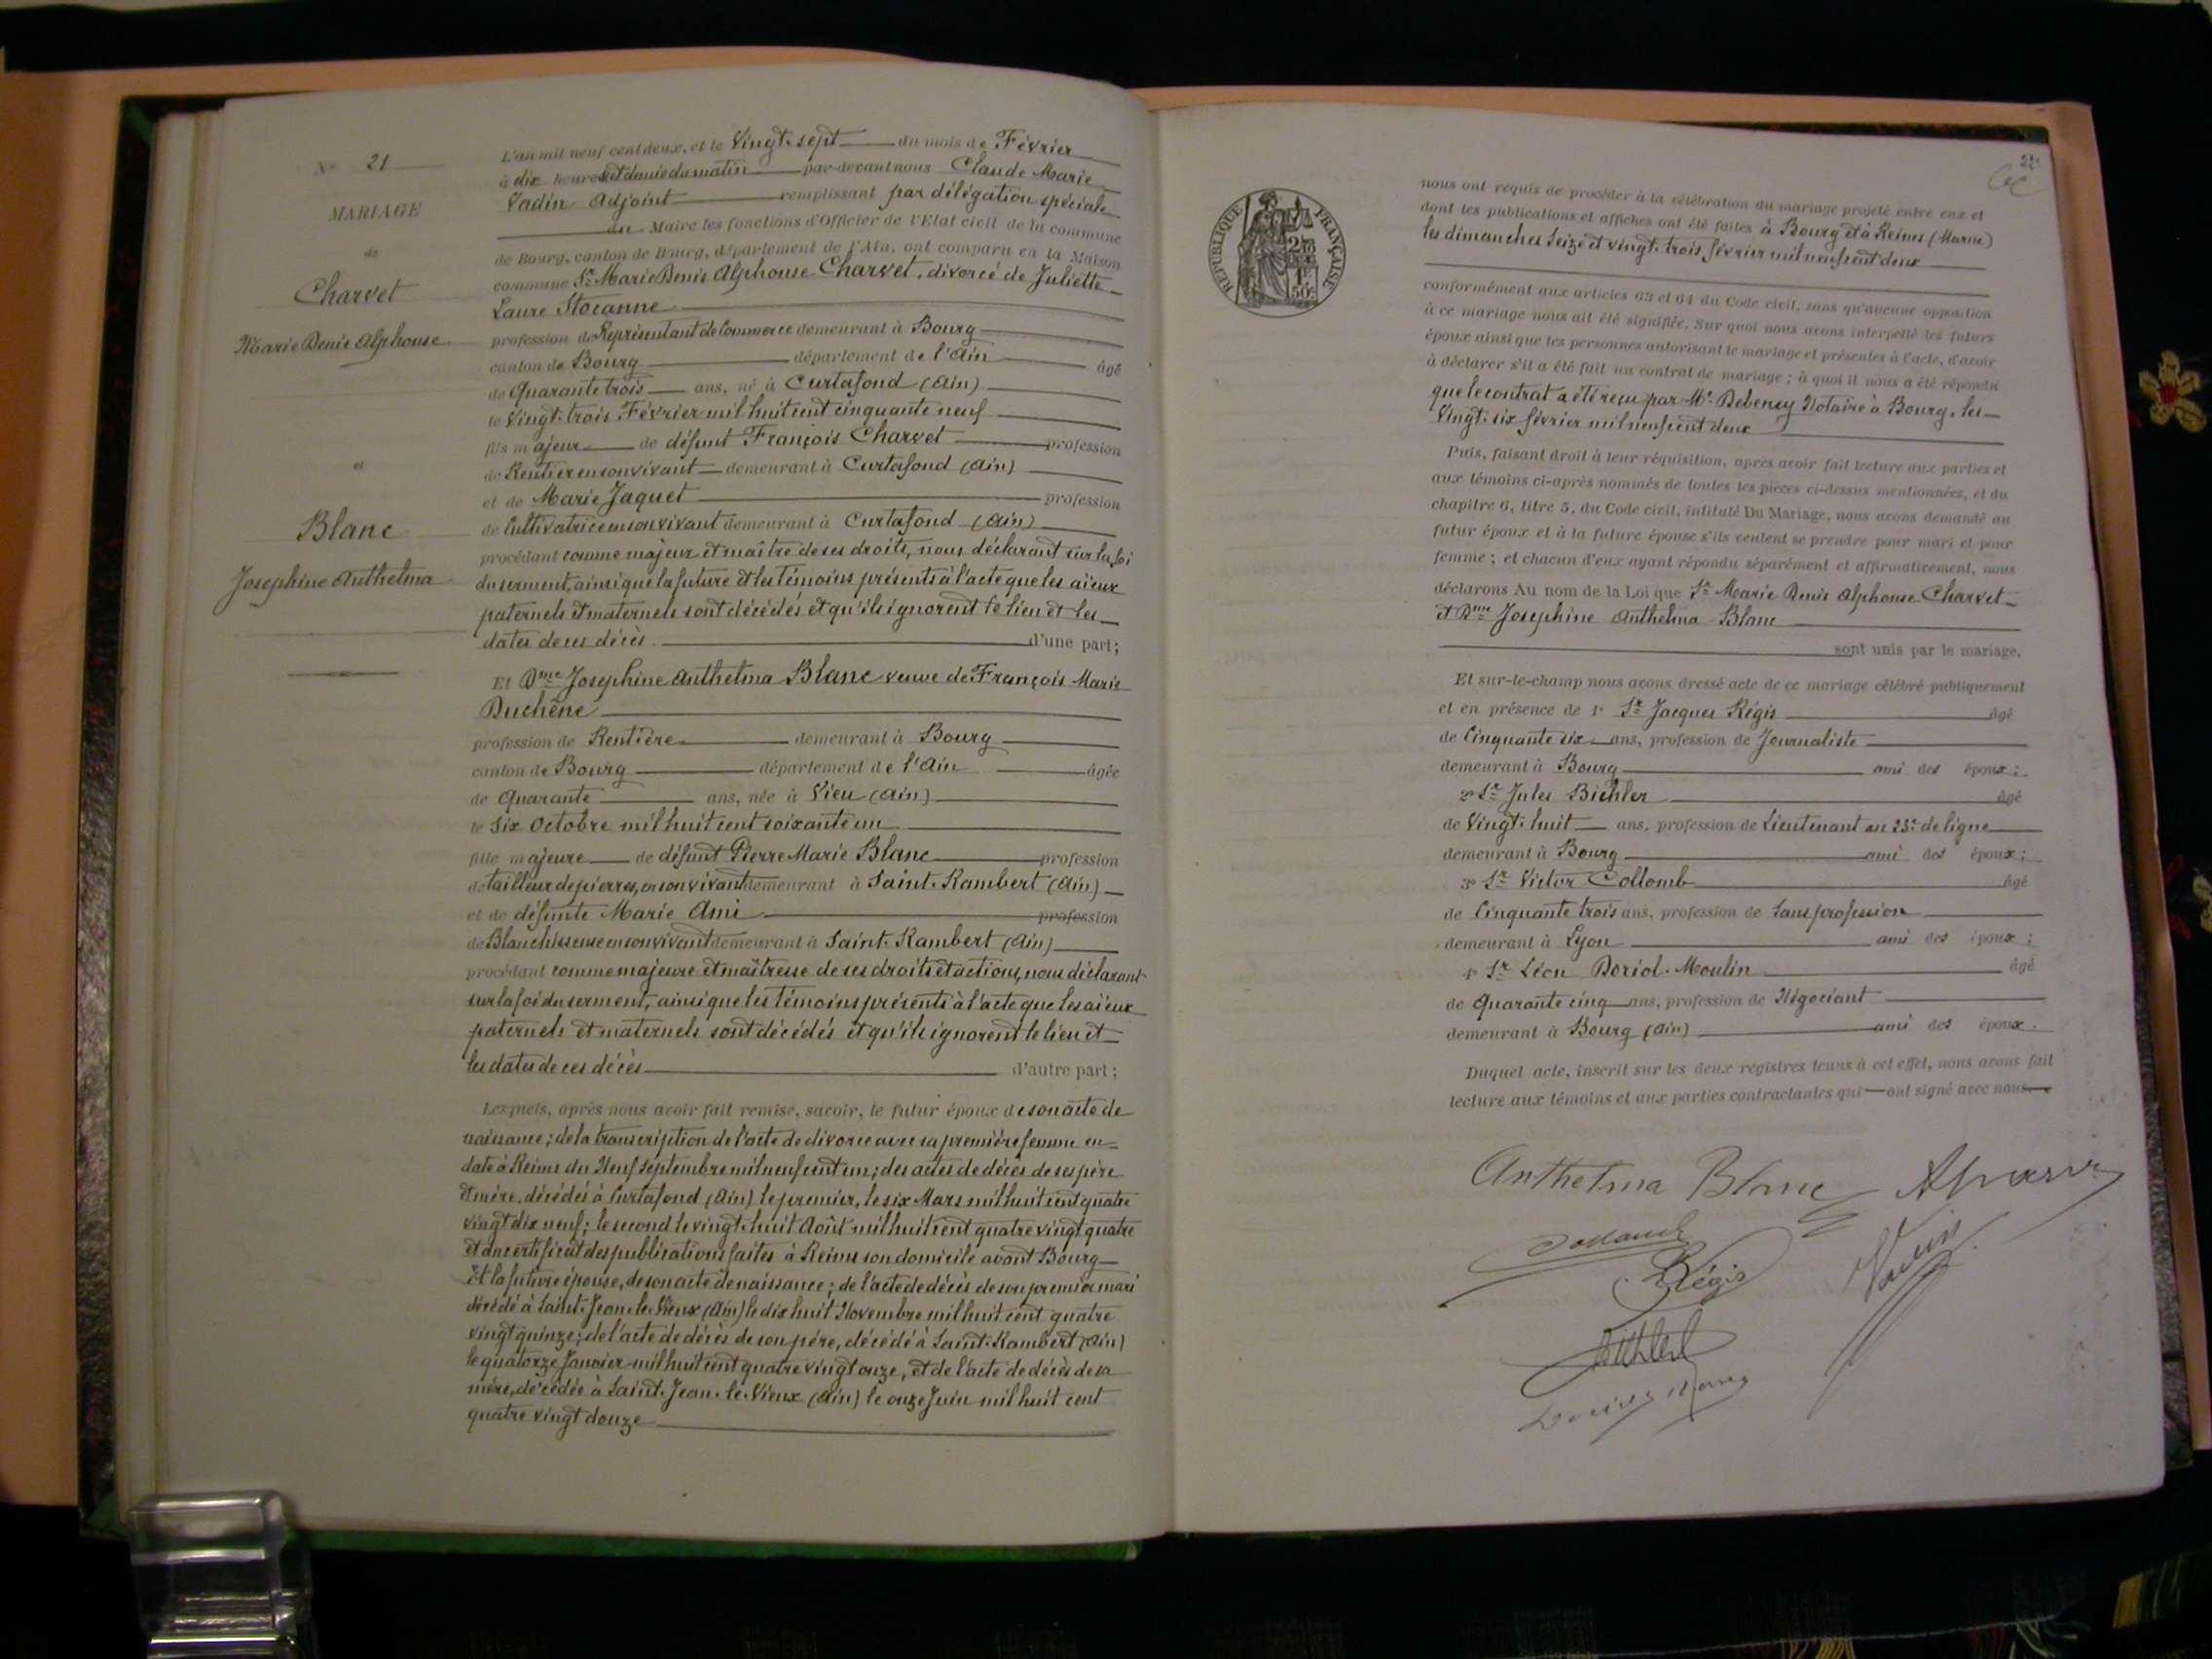 N° 21
MARIAGE
de
Charvet
Marie Denis Alphonse
et
Blanc
Josephine Anthelma
L'an mil neuf cent deux, et le Vingt-sept du mois de Février
à dix heures et demie du matin par-devant nous Claude Marie
Vadin Adjoint remplissant par délégation spéciale
du Maire les fonctions d'Officier de l'Etat civil de la commune
de Bourg, canton de Bourg, département de l'Ain, ont comparu en la Maison
commune Sr Marie Denis Alphonse Charvet, divorcé de Juliette
Laure Stocanne
profession de Représentant de Commerce demeurant à Bourg
canton de Bourg département de l'Ain âgé
de Quarante trois ans, né à Curtafond (Ain)
le Vingt-trois Février mil huit cent cinquante neuf
fils majeur de défunt François Charvet profession
de Rentier en son vivant demeurant à Curtafond (Ain)
et de Marie Jaquet profession
de Cultivatrice en son vivant demeurant à Curtafond (Ain)
procédant comme majeur et maître de ses droits, nous déclarant sur la foi
du serment, ainsi que la future et les témoins présents à l'acte que les aïeux
paternels et maternels sont décédés et qu'ils ignorent le lieu et les
dates de ces décès d'une part;
Et Dme Josephine Anthelma Blanc veuve de François Marie
Duchêne
profession de Rentière demeurant à Bourg
canton de Bourg département de l'Ain âgée
de Quarante ans, née à Vieu (Ain)
le Six Octobre mil huit cent soixante un
fille majeure de défunt Pierre Marie Blanc profession
de tailleur de pierres, en son vivant demeurant à Saint-Rambert (Ain)
et de défunte Marie Ami profession
de Blanchisseuse en son vivant demeurant à Saint-Rambert (Ain)
procédant comme majeure et maîtresse de ses droits et actions, nous déclarant
sur la foi du serment, ainsi que les témoins présents à l'acte que les aïeux
paternels et maternels sont décédés et qu'ils ignorent le lieu et
les dates de ces décès d'autre part;
Lesquels, après nous avoir fait remise, savoir, le futur époux de son acte de
naissance; de la transcription de l'acte de divorce avec sa première femme en
date à Reims du Neuf Septembre mil neuf cent un; des actes de décès de ses père
et mère, décédés à Curtafond (Ain) le premier, le six Mars mil huit cent quatre
vingt dix neuf; le second le vingt-huit Août mil huit cent quatre vingt quatre
et du certificat des publications faites à Reims son domicile avant Bourg
Et la future épouse, de son acte de naissance; de l'acte de décès de son premier mari
décédé à Saint-Jean-le-Vieux (Ain) le dix huit Novembre mil huit cent quatre
vingt quinze; de l'acte de décès de son père, décédé à Saint-Rambert (Ain)
le quatorze Janvier mil huit cent quatre vingt onze, et de l'acte de décès de sa
mère, décédée à Saint-Jean-le-Vieux (Ain) le onze Juin mil huit cent
quatre vingt douze
22
RÉPUBLIQUE FRANÇAISE
nous ont requis de procéder à la célébration du mariage projeté entre eux et
dont les publications et affiches ont été faites à Bourg et à Reims (Marne)
les dimanches Seize et vingt-trois février mil neuf cent deux
conformément aux articles 63 et 64 du Code civil, sans qu'aucune opposition
à ce mariage nous ait été signifiée. Sur quoi nous avons interpellé les futurs
époux ainsi que les personnes autorisant le mariage et présentes à l'acte, d'avoir
à déclarer s'il a été fait un contrat de mariage; à quoi il nous a été répondu
que le contrat a été reçu par Me Debeney Notaire à Bourg, les
Vingt-six février mil neuf cent deux
Puis, faisant droit à leur réquisition, après avoir fait lecture aux parties et
aux témoins ci-après nommés de toutes les pièces ci-dessus mentionnées, et du
chapitre 6, titre 5, du Code civil, intitulé Du Mariage, nous avons demandé au
futur époux et à la future épouse s'ils veulent se prendre pour mari et pour
femme; et chacun d'eux ayant répondu séparément et affirmativement, nous
déclarons Au nom de la Loi que Sr Marie Denis Alphonse Charvet
et Dme Josephine Anthelma Blanc
sont unis par le mariage.
Et sur-le-champ nous avons dressé acte de ce mariage célébré publiquement
et en présence de 1° Sr Jacques Régis âgé
de Cinquante six ans, profession de Journaliste
demeurant à Bourg ami des époux;
2° Sr Jules Bichler âgé
de Vingt-huit ans, profession de Lieutenant au 23e de ligne
demeurant à Bourg ami des époux;
3° Sr Victor Collomb âgé
de Cinquante trois ans, profession de Sans profession
demeurant à Lyon ami des époux;
4° Sr Léon Doriol-Moulin âgé
de Quarante cinq ans, profession de Négociant
demeurant à Bourg (Ain) ami des époux.
Duquel acte, inscrit sur les deux registres tenus à cet effet, nous avons fait
lecture aux témoins et aux parties contractantes qui ont signé avec nous
Anthelma Blanc
Régis